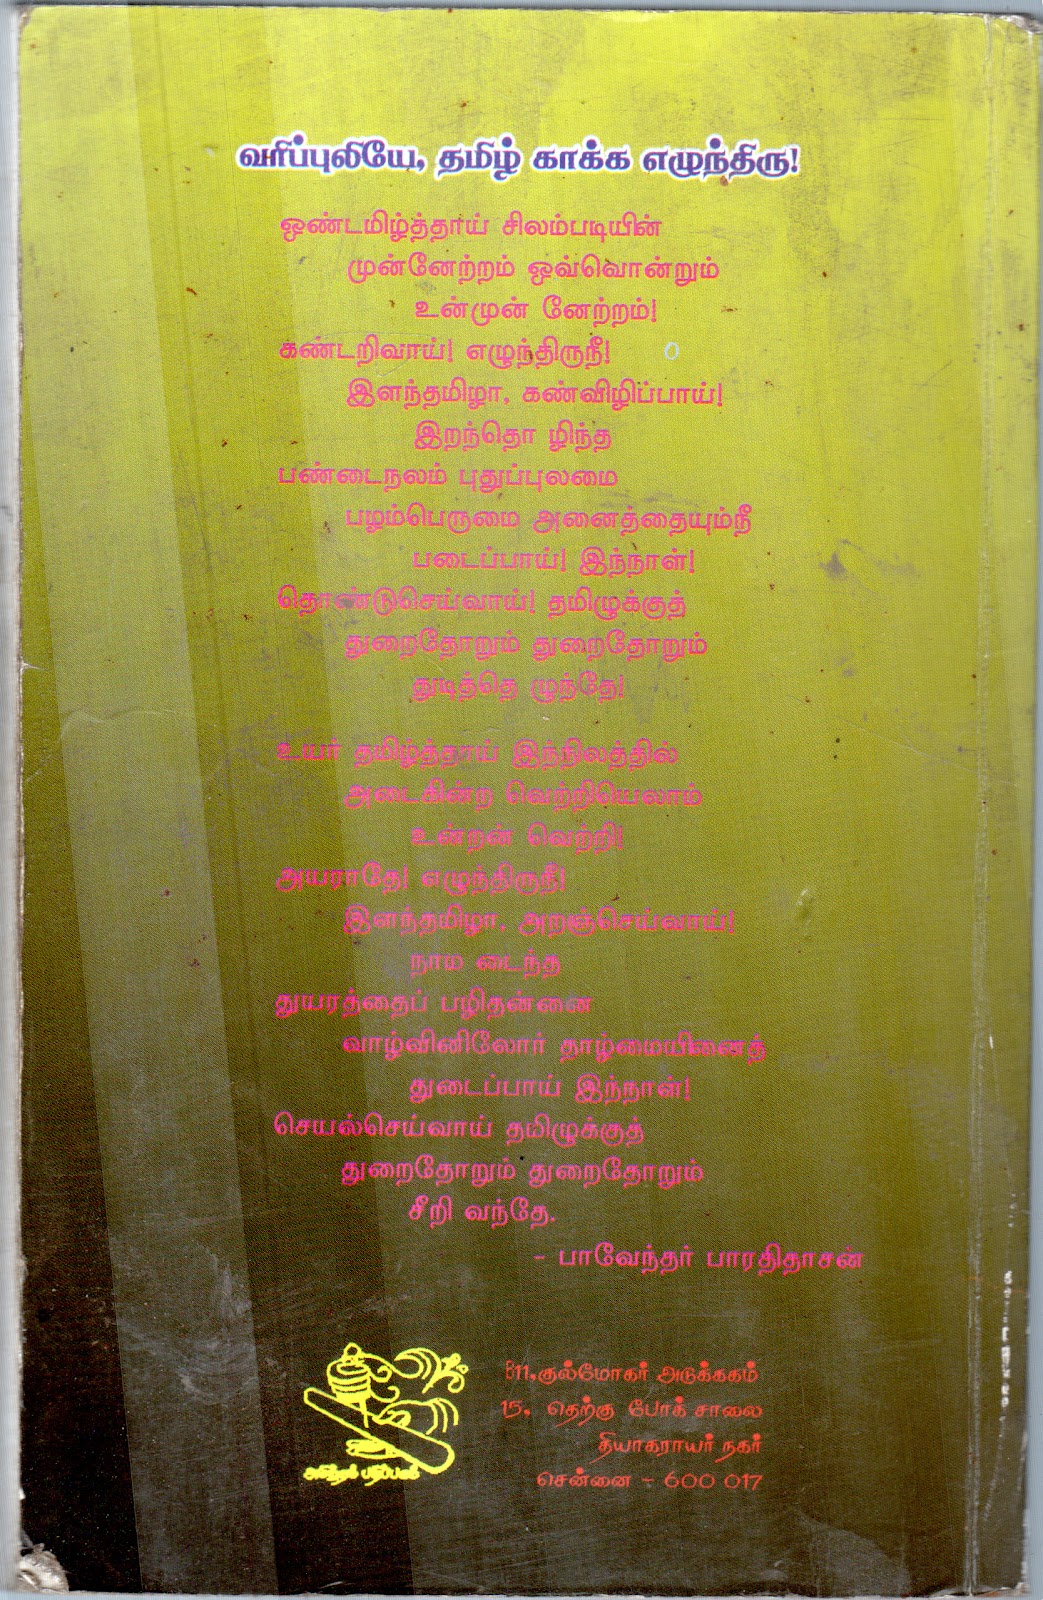 வரிப்புலியே, தமிழ் காக்க எழுந்திரு!
ஒண்டமிழ்த்தாய் சிலம்படியின்
முன்னேற்றம் ஒவ்வொன்றும்
உன்முன் னேற்றம்!
கண்டறிவாய்! எழுந்திருநீ!
இளந்தமிழா, கண்விழிப்பாய்!
இறந்தொ ழிந்த
பண்டைநலம் புதுப்புலமை
பழம்பெருமை அனைத்தையும்நீ
படைப்பாய்! இந்நாள்!
தொண்டுசெய்வாய்! தமிழுக்குத்
துறைதோறும் துறைதோறும்
துடித்தெ ழுந்தே!
உயர் தமிழ்த்தாய் இந்நிலத்தில்
அடைகின்ற வெற்றியெலாம்
உன்றன் வெற்றி!
அயராதே! எழுந்திருநீ!
இளந்தமிழா, அறஞ்செய்வாய்!
நாம டைந்த
துயரத்தைப் பழிதன்னை
வாழ்வினிலோர் தாழ்மையினைத்
துடைப்பாய் இந்நாள்!
செயல்செய்வாய் தமிழுக்குத்
துறைதோறும் துறைதோறும்
சீறி வந்தே.
- பாவேந்தர் பாரதிதாசன்
B11,குல்மோகர் அடுக்ககம்
15, தெற்கு போக் சாலை
தியாகராயர் நகர்
சென்னை - 600 017